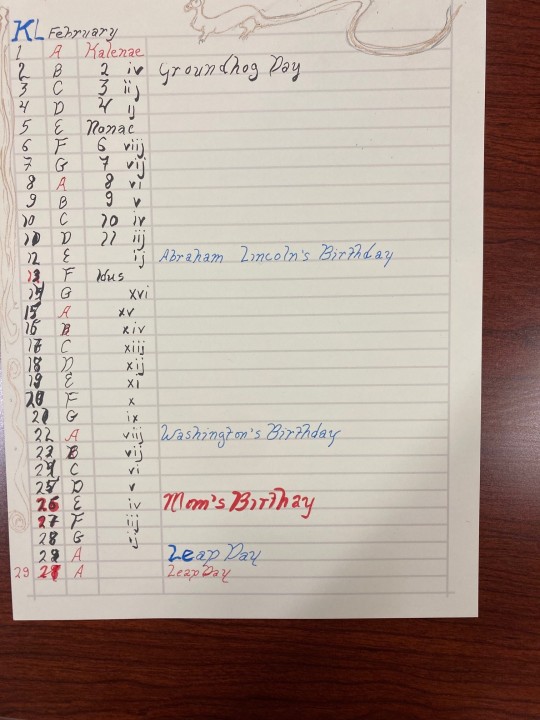 KL February
1 A Kalenae
2 B 2 iv Groundhog Day
3 C 3 iij
4 D 4 ij
5 E Nonae
6 F 6 viij
7 G 7 vij
8 A 8 vi
9 B 9 v
10 C 10 iv
11 D 11 iij
12 E ij Abraham Lincoln's Birthday
13 F Idus
14 G xvi
15 A xv
16 B xiv
17 C xiii
18 D xij
19 E xi
20 F x
21 G ix
22 A viij Washington's Birthday
23 B vij
24 C vi
25 D v
26 E iv Mom's Birthay
27 F iij
28 G ij
29 A Leap Day
29 28 A Leap Day